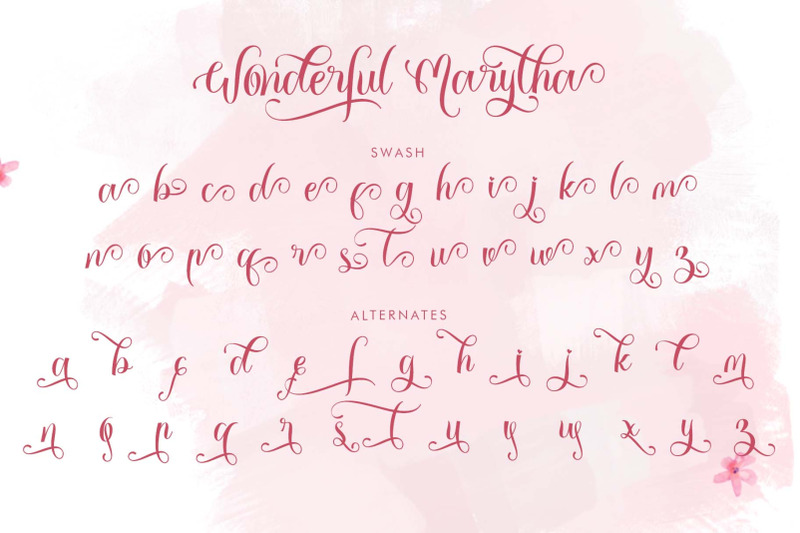 Wonderful Marytha
SWASH
a b c d e f g h i j k l m
n o p q r s t u v w x y z
ALTERNATES
a b c d e f g h i j k l m
n o p q r s t u v w x y z